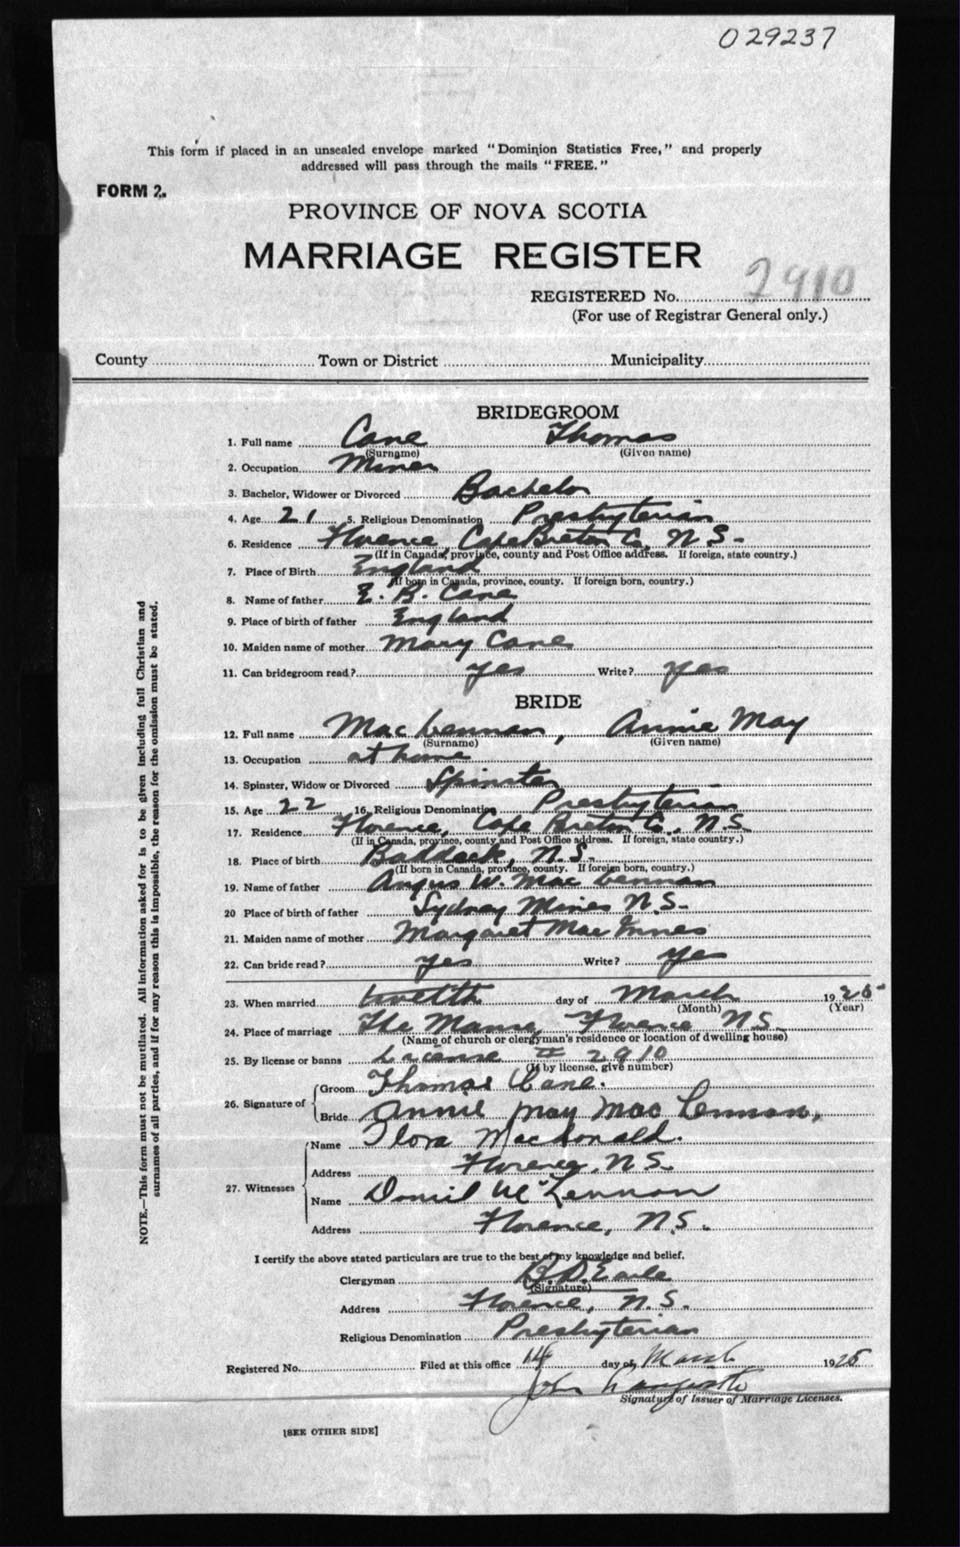 029237
This form if placed in an unsealed envelope marked "Dominion Statistics Free," and properly
addressed will pass through the mails "FREE."
FORM 2.
PROVINCE OF NOVA SCOTIA
MARRIAGE REGISTER
REGISTERED No. 2910
(For use of Registrar General only.)
County Town or District Municipality
BRIDEGROOM
1. Full name Cane Thomas
(Surname) (Given name)
2. Occupation Miner
3. Bachelor, Widower or Divorced Bachelor
4. Age 21 5. Religious Denomination Presbyterian
6. Residence Florence, Cape Breton Co., N.S.
(If in Canada, province, county and Post Office address. If foreign, state country.)
7. Place of Birth England
(If born in Canada, province, county. If foreign born, country.)
8. Name of father E. B. Cane
9. Place of birth of father England
10. Maiden name of mother Mary Cane
11. Can bridegroom read? yes Write? yes
BRIDE
12. Full name MacLennan, Annie May
(Surname) (Given name)
13. Occupation at home
14. Spinster, Widow or Divorced Spinster
15. Age 22 16. Religious Denomination Presbyterian
17. Residence Florence, Cape Breton Co., N.S.
(If in Canada, province, county and Post Office address. If foreign, state country.)
18. Place of birth Baddeck, N.S.
(If born in Canada, province, county. If foreign born, country.)
19. Name of father Angus W. MacLennan
20 Place of birth of father Sydney Mines N.S.
21. Maiden name of mother Margaret MacInnes
22. Can bride read? yes Write? yes
23. When married twelfth day of March 1925
(Month) (Year)
24. Place of marriage The Manse, Florence N.S.
(Name of church or clergyman's residence or location of dwelling house)
25. By license or banns License # 2910
(If by license, give number)
26. Signature of
Groom Thomas Cane.
Bride Annie May MacLennan,
27. Witnesses
Name Flora MacDonald.
Address Florence, N.S.
Name Daniel McLennan
Address Florence, N.S.
I certify the above stated particulars are true to the best of my knowledge and belief.
Clergyman B. D. Earle
(Signature)
Address Florence, N.S.
Religious Denomination Presbyterian
Registered No. Filed at this office 14 day of March 1925
John
Signature of Issuer of Marriage Licenses.
[SEE OTHER SIDE]
NOTE.—This form must not be mutilated. All information asked for is to be given including full Christian and
surnames of all parties, and if for any reason this is impossible, the reason for the omission must be stated.